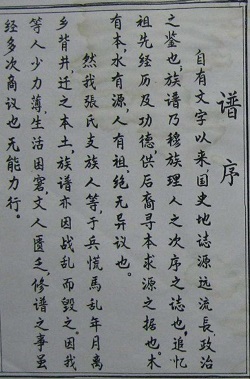 谱序
自有文字以来,国史地誌源远流長,政治
之鉴也,族谱乃穆族理人之次序之誌也,追忆
祖先经历及功德,供后裔寻本求源之据也。木
有本,水有源,人有祖,绝无异议也。
然我張氏支族人等,于兵慌馬乱年月离
乡背井,迁之本土,族谱亦因战乱而毁之。因我
等人少力薄,生活困窘,文人匮乏,修谱之事虽
经多次商议也无能力行。